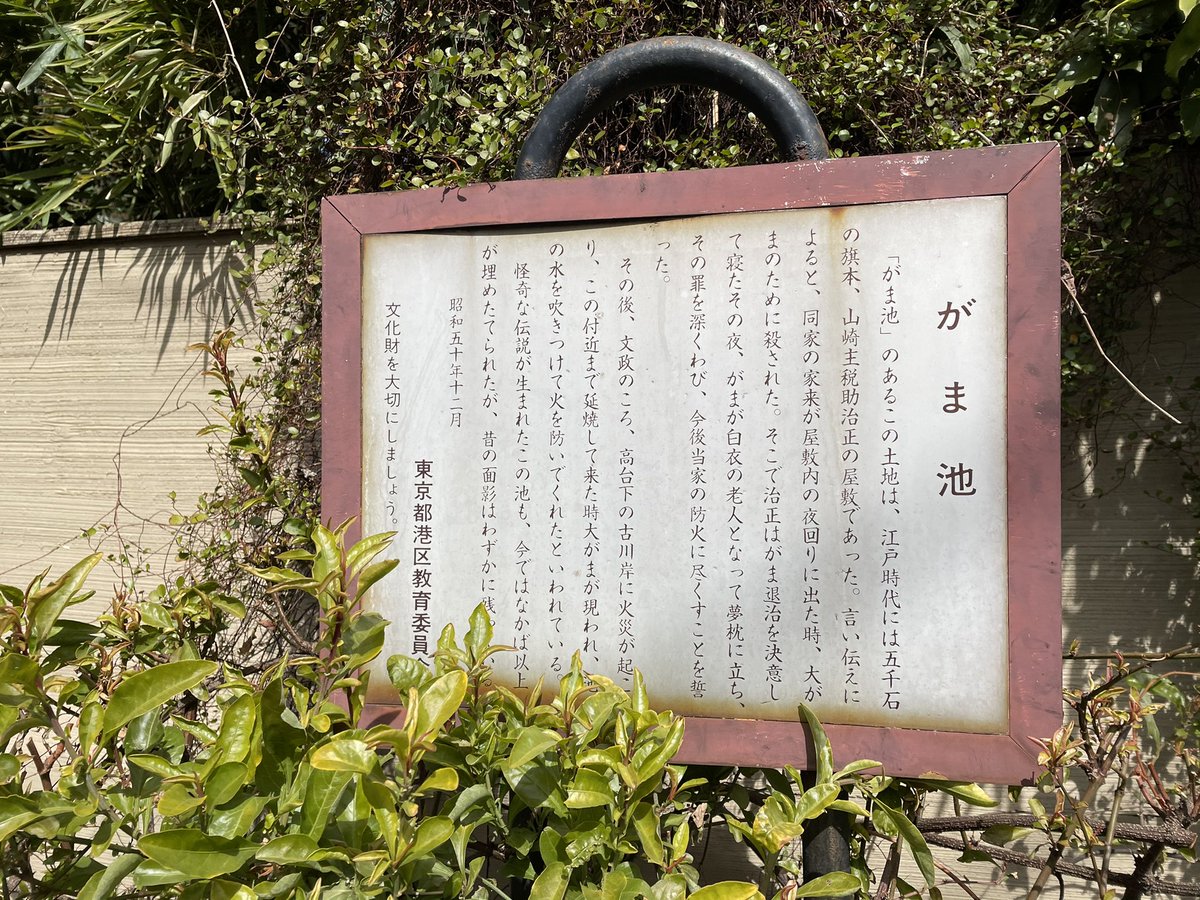 がま池
「がま池」のあるこの土地は、江戸時代には五千石
の旗本、山崎主税助治正の屋敷であった。言い伝えに
よると、同家の家来が屋敷内の夜回りに出た時、大が
まのために殺された。そこで治正はがま退治を決意し
て寝たその夜、がまが白衣の老人となって夢枕に立ち、
その罪を深くわび、今後当家の防火に尽くすことを誓
った。
その後、文政のころ、高台下の古川岸に火災が起こ
り、この付近まで延焼して来た時大がまが現われ、
の水を吹きつけて火を防いでくれたといわれている。
怪奇な伝説が生まれたこの池も、今ではなかば以上
が埋めたてられたが、昔の面影はわずかに残っ
昭和五十年十二月
東京都港区教育委員会
文化財を大切にしましょう。